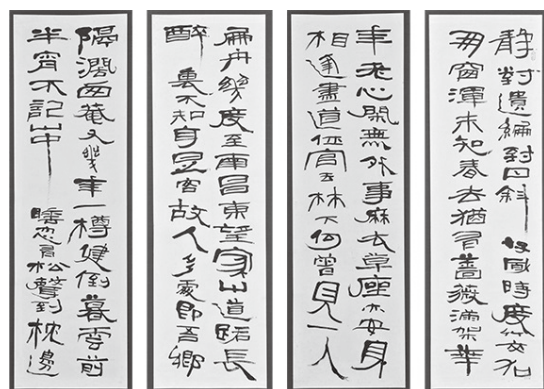 静對遺編對日斜 好風時度竹交加
窗渾未知春去猶有薔薇滿架華
年老心閒無外事麻衣草座亦安身
相逢盡道休官去林下何曾見一人
扁舟幾度至南昌東望家山道路長
醉裏不知身是客故人多處即吾鄉
隔澗西菴又幾年一樽健倒暮雲前
半宵不記山中睡忽有松聲到枕邊